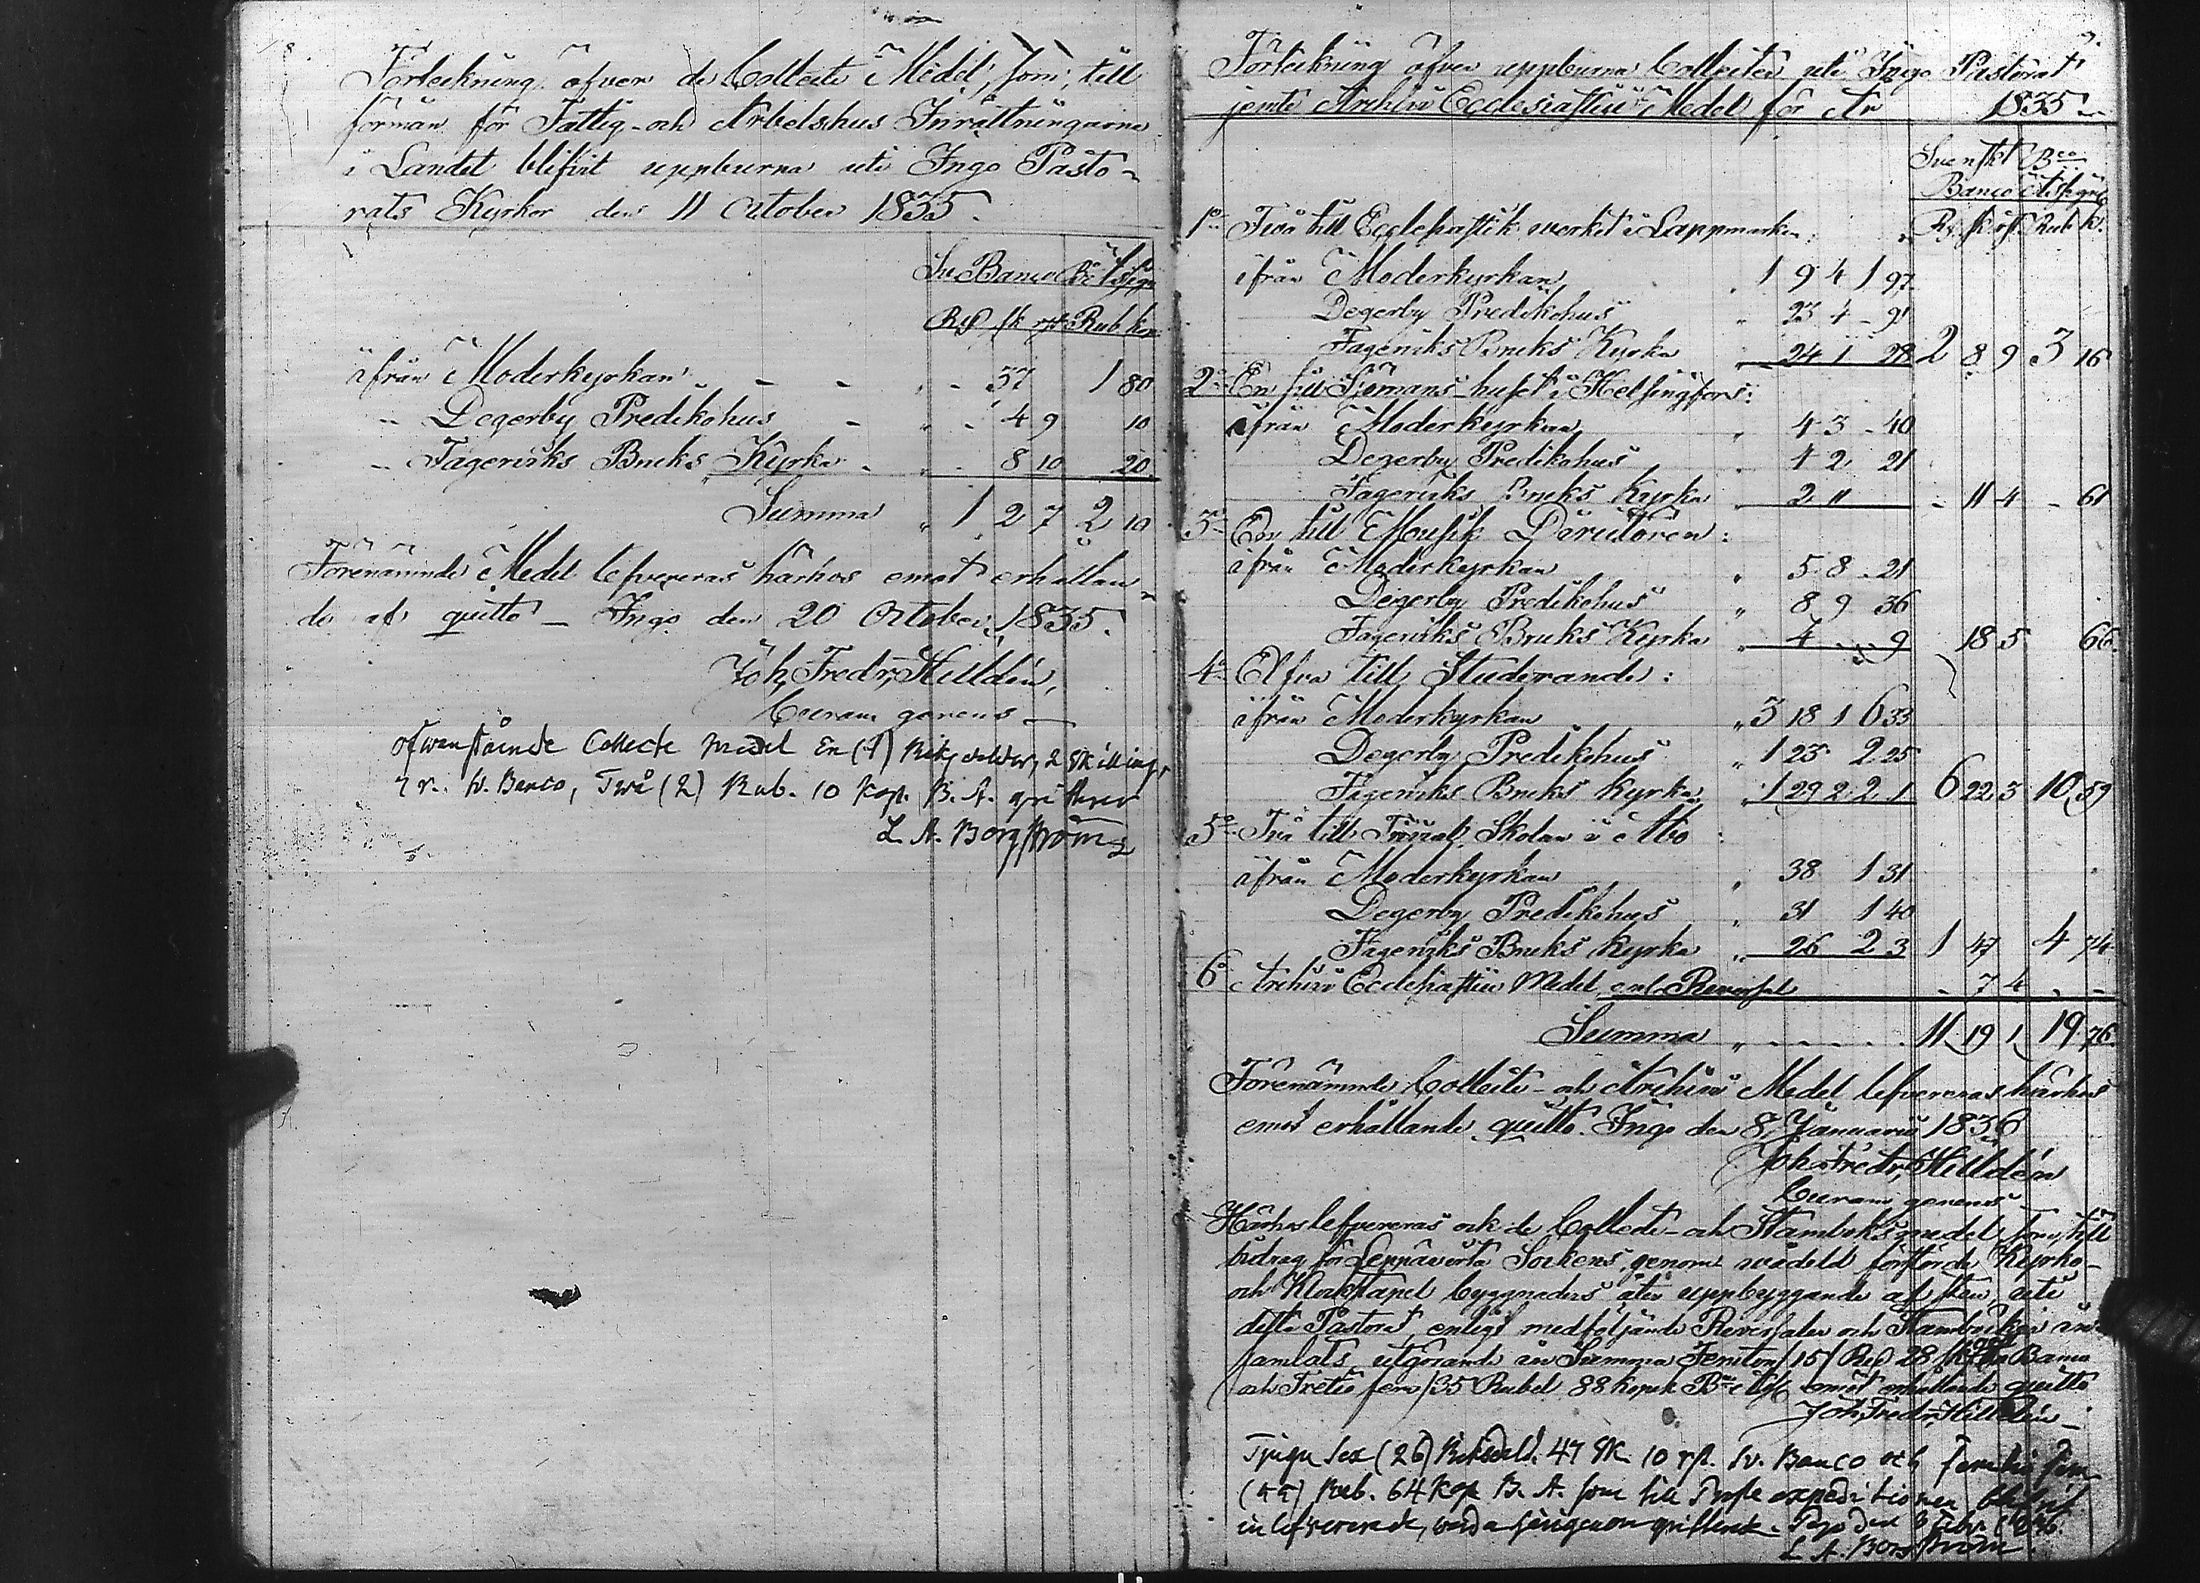 Förteckning öfver de Collecte Medel, som, till
förmån för Fattig- och Arbetshus Inrättningarne
i Landet blifvit uppburna uti Ingo Pasto-
rats Kyrkor den 11 October 1835.
Sv. Banco Bco Assign
Rd sk rst Rub kop
ifrån Moderkyrkan - - - 37 1 80
" Degerby Predikohus - " - 4 9 10
" Fagerviks Bruks Kyrka - " - 8 10 20
Summa " 1 2 7 2 10
Förenämnde Medel lefvereras härhos emot erhållan-
de af quitto - Ingo den 20 October 1835.
Joh. Fredr. Hilldén,
Curam gerens
Ofwanstående Collecte medel En (1) Riksdaler, 2 Skillings
7 r. Sv. Banco, Två (2) Rub. 10 Kop. B. A. qvitterar
L. A. Borgström
Förteckning öfver uppburna Collecter uti Ingo Pastorat
jemte Archivi Ecclesiastici Medel för År 1835
Svenskt Bco
Banco Assign
Rd sk rst Rub k.
1o Två till Ecclesiastik verket i Lappmarken:
ifrån Moderkyrkan " 1 9 4 1 97
Degerby Predikohus " 23 4 - 91
Fagerviks Bruks Kyrka " 24 1 28 2 8 9 3 16
2o En till Sjömans-huset i Helsingfors:
ifrån Moderkyrkan " 4 3 - 40
Degerby Predikohus " 4 2 21
Fagerviks Bruks Kyrka " 2 11 - 11 4 - 61
3o En till Musik Directören:
ifrån Moderkyrkan " 5 8 - 21
Degerby Predikohus " 8 9 36
Fagerviks Bruks Kyrka " 4 - 9 18 5 66
4o Elfva till Studerande:
ifrån Moderkyrkan " 3 18 1 6 33
Degerby Predikohus " 1 23 2 25
Fagerviks Bruks Kyrka " 1 29 2 2 1 6 22 3 10 59
5o Två till Trivial Skolan i Åbo:
ifrån Moderkyrkan " 38 1 31
Degerby Predikohus " 31 1 40
Fagerviks Bruks Kyrka " 26 2 3 1 47 4 74
6o Archivi Ecclesiastici Medel enl. Reversal - 7 4 - -
Summa " - - - - - 11 19 1 19 76
Förenämnde Collecte- och Archivi Medel lefvereras härhos
emot erhållande quitto. Ingo den 8 Januarii 1836
Joh. Fredr. Hilldén
Curam gerens
Härhos lefvereras ock de Collect- och Stamboksmedel, som, till
bidrag för Leppävirta Sockens, genom vådeld förstörde Kyrko-
och Klockstapel byggnaders åter uppbyggande af sten, uti
detta Pastorat, enligt medföljande Reversaler och Stamboken in-
samlats, utgörande en Summa Femton /15/ Rd 28 sk Banco
och Tretio fem /35 Rubel 88 kopek Bco Ass. emot erhållande quitto
Joh. Fredr. Hilldén
Tjugu Sex (26) Riksdald. 47 Sk. 10 rst. Sv. Banco och femtio fem
(55) Rub. 64 Kop B. A. som till Prosts expeditionen blifvit
inlefvererade, varda härigenom qvitterade. den 3 Febr. 1836.
L. A. Borgström.